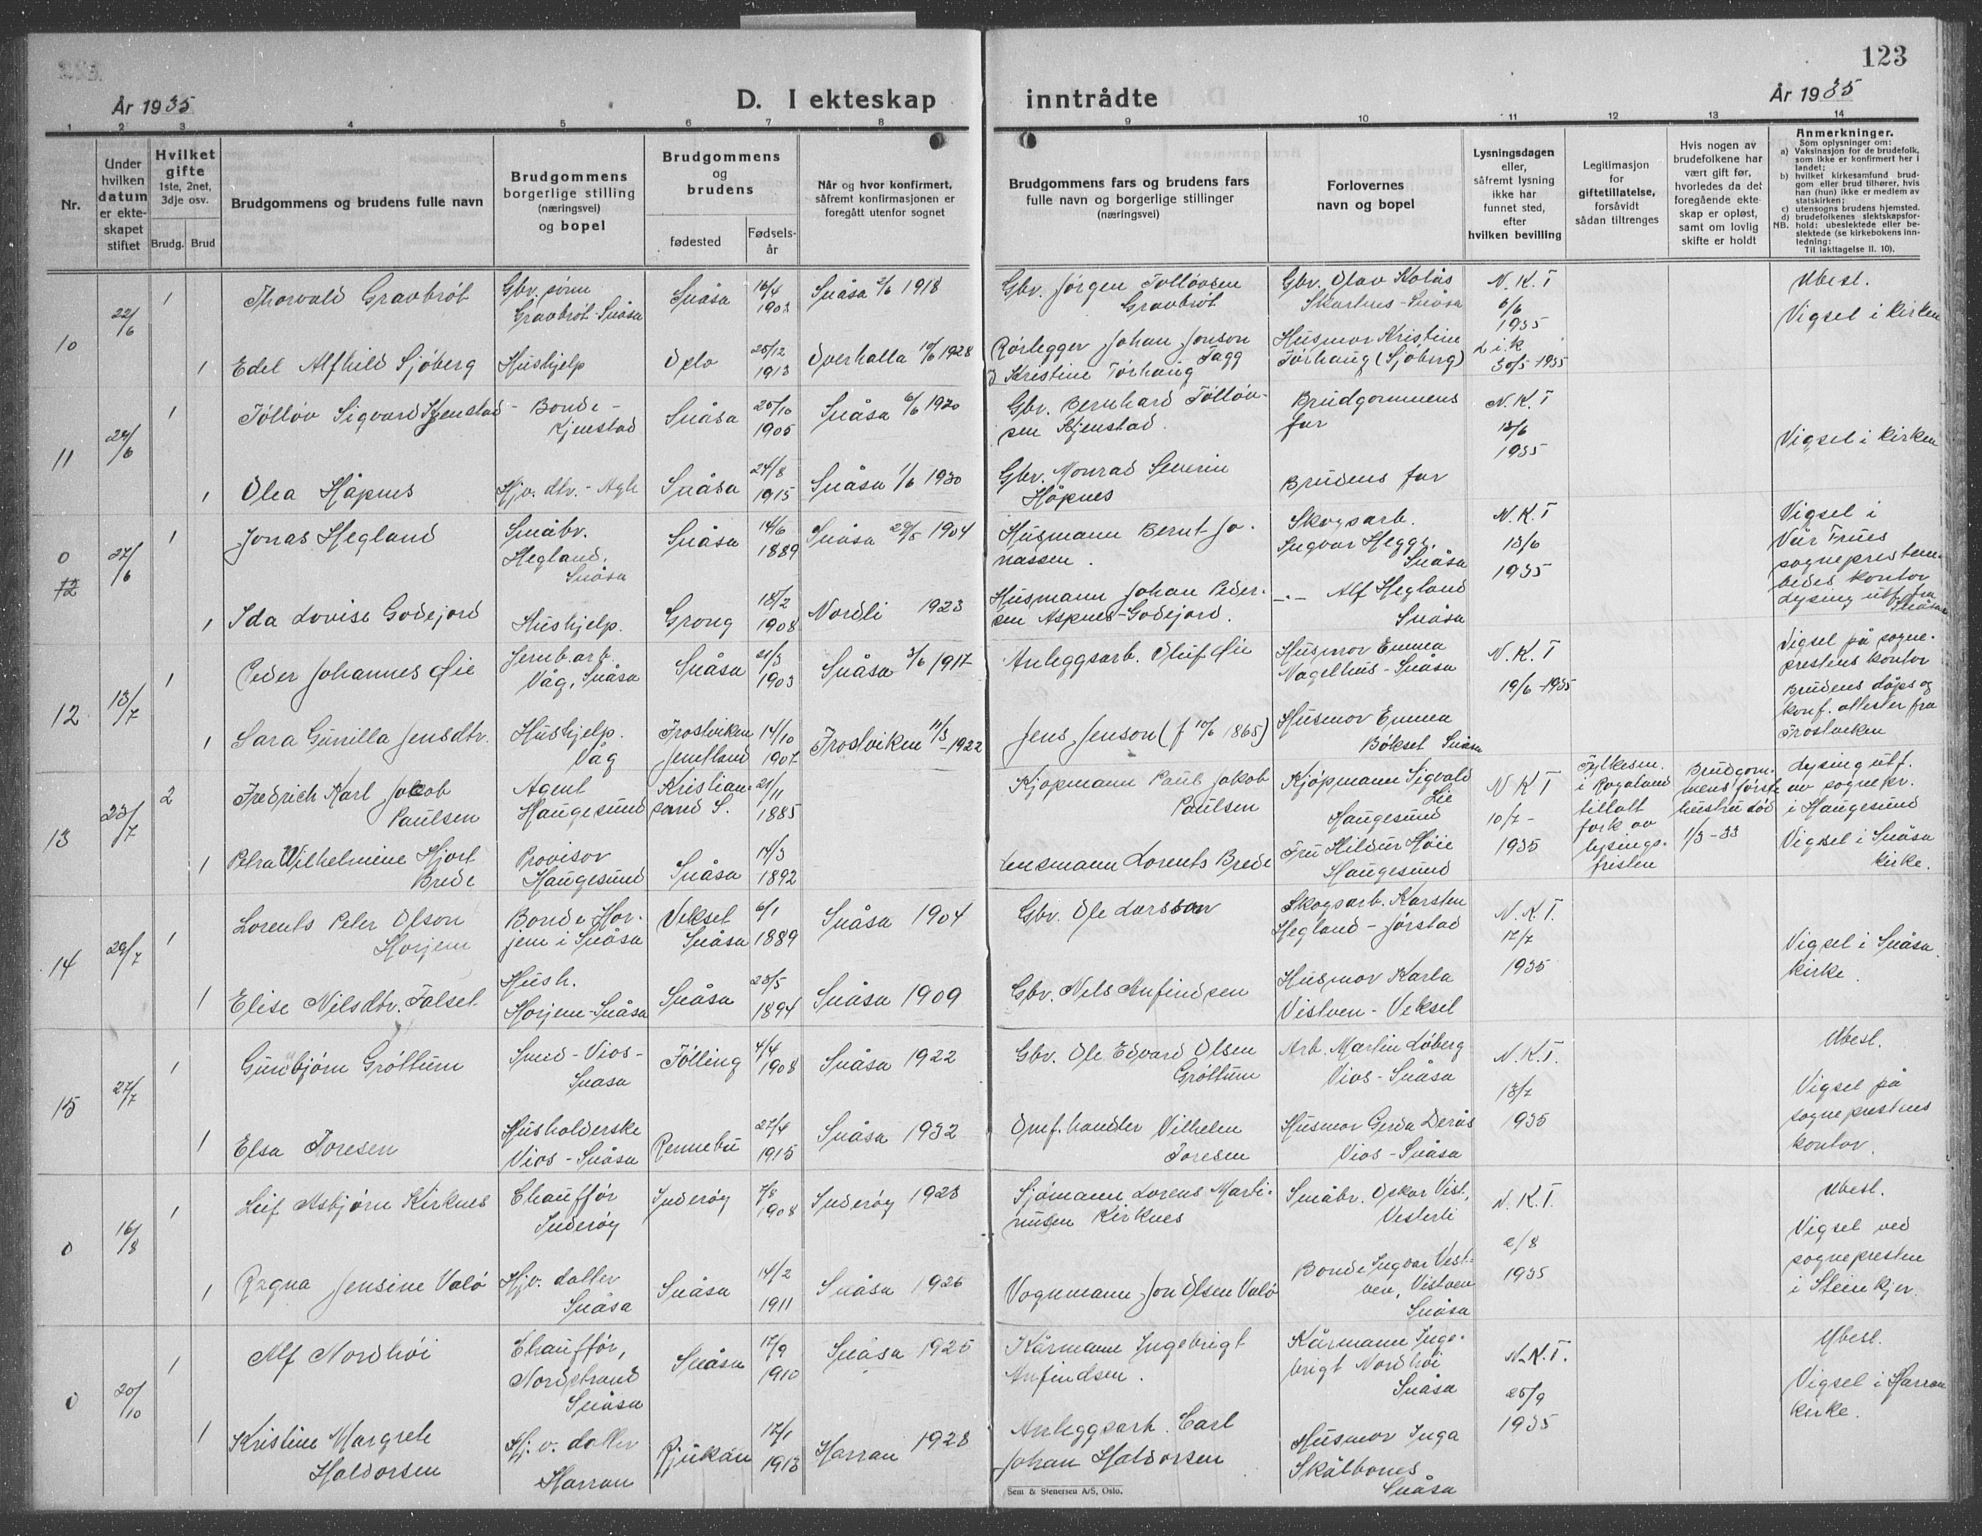 123
År 1935
D. I ekteskap inntrådte
År 1935
1 2 3 4 5 6 7 8 9 10 11 12 13 14
Nr.
Under
hvilken
datum
er ekte-
skapet
stiftet
Hvilket
gifte
1ste, 2net,
3dje osv.
Brudg. Brud
Brudgommens og brudens fulle navn
Brudgommens
borgerlige stilling
(næringsvei)
og bopel
Brudgommens
og
brudens
fødested
Fødsels-
år
Når og hvor konfirmert,
såfremt konfirmasjonen er
foregått utenfor sognet
Brudgommens fars og brudens fars
fulle navn og borgerlige stillinger
(næringsvei)
Forlovernes
navn og bopel
Lysningsdagen
eller,
såfremt lysning
ikke har
funnet sted,
efter
hvilken bevilling
Legitimasjon
for
giftetillatelse,
forsåvidt
sådan tiltrenges
Hvis nogen av
brudefolkene har
vært gift før,
hvorledes da det
foregående ekte-
skap er opløst,
samt om lovlig
skifte er holdt
Anmerkninger.
Som oplysning om:
a) Vaksinasjon for de brudefolk,
som ikke er konfirmert her i
landet;
b) hvilket kirkesamfund brud-
gom eller brud tilhører, hvis
han (hun) ikke er medlem av
statskirken;
c) utensogns brudens hjemsted.
d) brudefolkenes slektskapsfor-
NB. hold: ubeslektede eller be-
slektede (se kirkebokens inn-
ledning:
Til iakttagelse II. 10).
10
22/6
1
Thorvald Gravbrøt
Gbr. sønn
Gravbrøt-Snåsa
Snåsa
16/4
1903
Snåsa 2/6 1918
Gbr. Jørgen Tolløvsen
Gravbrøt
Gbr. Olav Kolås
Snåsa
N.K.T
6/6
1935
Ubesl.
Vigsel i kirken
1
Edel Alfhild Sjøberg
Hushjelp
Oslo
25/12
1913
Overhalla 10/6 1928
Rørlegger Johan Jonson
Fagg
Kristine Torhaug
Husmor Kristine
Torhaug (Sjøberg)
L.i.k
30/5-1935
11
24/6
1
Tølløv Sigvard Kjenstad
Bonde -
Kjenstad
Snåsa
25/10
1905
Snåsa 6/6 1920
Gbr. Bernhard Tølløv-
sen Kjenstad.
Brudgommens
far
N.K.T
13/6
1935
Vigsel i kirken
1
Olea Håpnes
Hjv. dtr. - Agle
Snåsa
24/8
1915
Snåsa 1/6 1930
Gbr. Monrad Severin
Håpnes
Brudens far
0
12
27/6
1
Jonas Hegland
Småbr.
Hegland,
Snåsa
Snåsa
14/6
1889
Snåsa 29/5 1904
Husmann Bernt Jo-
nassen.
Skogsarb.
Ingvar Hegge,
Snåsa
N.K.T
13/6
1935
Vigsel i
Vår Frues
sogneprestem-
bedes kontor
Lysing utf. fra
Snåsa
1
Ida Lovise Godejord
Hushjelp.
Grong
18/2
1908
Nordli 1923
Husmann Johan Peder-
sen Aspnes-Godejord.
-"- Alf Hegland
Snåsa
12
13/7
1
Peder Johannes Øie
Jernb.arb.
Våg, Snåsa
Snåsa
21/3
1903
Snåsa 3/6 1917
Anleggsarb. Oluf Øie
Husmor Emma
Nagelhus-Snåsa
N.K.T
19/6-1935
Vigsel på sogne-
prestens kontor
Brudens dåps og
konf. attester fra
Frostviken
1
Sara Gunilla Jensdtr.
Hushjelp.
Våg
Frostviken
Jemtland
14/10
1907
Frostviken 11/3-1922
Jens Jenson (f 10/6 1865)
Husmor Emma
Bøkset Snåsa
13
23/7
2
Fredrich Karl Jakob
Paulsen
Agent
Haugesund
Kristian-
sand S.
21/11
1885
Kjøpmann Paul Jakob
Paulsen
Kjøpmann Sigvald
Lie
Haugesund
N K T
10/7-
1935
Fylkesm.
i Rogaland
tillatt
fork. av
lysings-
fristen
Brudgom-
mens første
hustru død
1/3-33
Lysing utf.
av sognepr.
i Haugesund
Vigsel i Snåsa
kirke.
1
Petra Wilhelmine Hjort
Brede
Provisor
Haugesund
Snåsa
14/3
1892
Lensmann Lorents Brede
Fru Hildur Høie
Haugesund
14
29/7
1
Lorents Peter Olson
Horjem
Bonde Hor-
jem i Snåsa
Vekset
Snåsa
6/1
1889
Snåsa 1904
Gbr. Ole Larsson
Skogsarb. Karsten
Hegland - Jørstad
N.K.T.
12/7
1935
Vigsel i Snåsa
kirke.
1
Elise Nilsdtr. Falset
Hush.
Horjem-Snåsa
Snåsa
23/5
1894
Snåsa 1909
Gbr. Nils Anfindsen
Husmor Karla
Vistven - Vekset
15
27/7
1
Gunbjørn Grøttum
Smed - Vios-
Snåsa
Tølling
4/4
1908
Snåsa 1922
Gbr. Ole Edvard Olsen
Grøttum
Arb. Martin Løberg
Vios - Snåsa
N.K.T.
13/7
1935
Ubesl.
Vigsel på
sogneprestens
kontor.
1
Elsa Toresen
Husholderske
Vios - Snåsa
Rennebu
27/4
1915
Snåsa 1932
Omf.handler Vilhelm
Toresen
Husmor Gerda Derås
Vios - Snåsa
0
16/8
1
Leif Asbjørn Kirknes
Chauffør
Inderøy
Inderøy
7/8
1908
Inderøy 1923
Sjømann Lorens Marti-
nusen Kirknes
Småbr. Oskar Vist,
Vesterli
N.K.T.
2/8
1935
Ubesl.
Vigsel ved
sognepresten
i Steinkjer.
1
Ragna Jensine Valø
Hjv. datter
Snåsa
Snåsa
14/2
1911
Snåsa 1926
Vognmann Jon Olsen Valø
Bonde Ingvar Vist-
ven, Vistven
Snåsa
0
20/10
1
Alf Nordhøi
Chauffør,
Nordstrand
Snåsa
Snåsa
17/9
1910
Snåsa 1925
Kårmann Ingebrigt
Anfindsen.
Kårmann Inge-
brigt Nordhøi
Snåsa
N.K.T.
25/9
1935
Ubesl.
Vigsel i Harran
kirke.
1
Kristine Margrete
Haldorsen
Hj.v. datter
Harran
Rjukan
17/1
1913
Harran 1928
Anleggsarb. Carl
Johan Haldorsen
Husmor Inga
Skålbones
Snåsa
Sem & Stenersen A/S, Oslo.